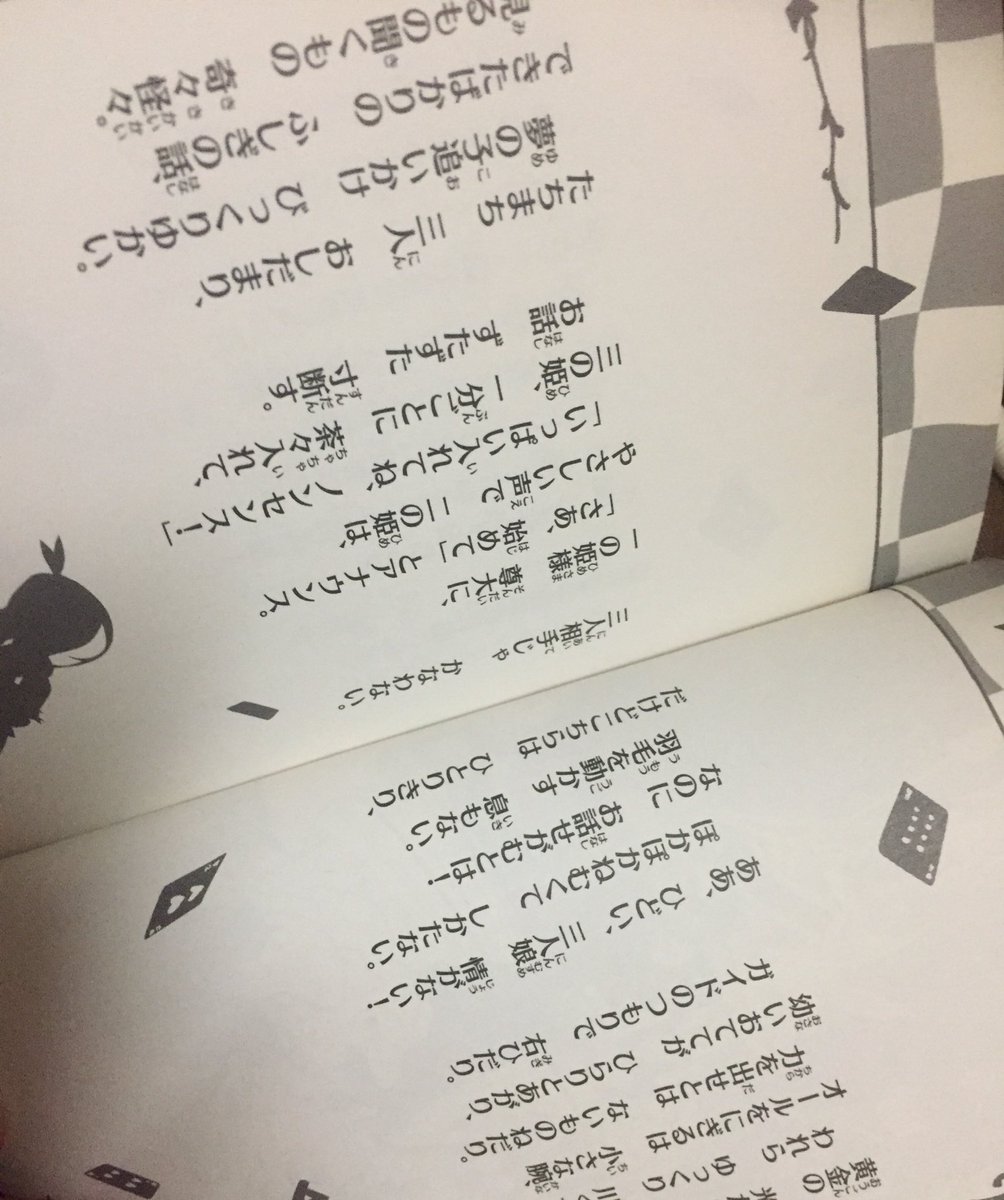 黄金の
われら ゆっくり
オールをにぎるは 小さな腕、
力を出せとは ないものねだり。
幼いおててが ひらりとあがり、
ガイドのつもりで 右ひだり。
ああ、ひどい、三人娘 情がない！
ぽかぽかねむくて しかたない。
なのに お話せがむとは！
羽毛を動かす 息もない。
だけどこちらは ひとりきり、
三人相手じゃ かなわない。
一の姫様 尊大に、
「さあ、始めて」とアナウンス。
やさしい声で 二の姫は、
「いっぱい入れてね、ノンセンス！」
三の姫、一分ごとに 茶々入れて、
お話 ずたずた 寸断す。
たちまち 三人 おしだまり、
夢の子追いかけ びっくりゆかい。
できたばかりの ふしぎの話、
見るもの聞くもの 奇々怪々。